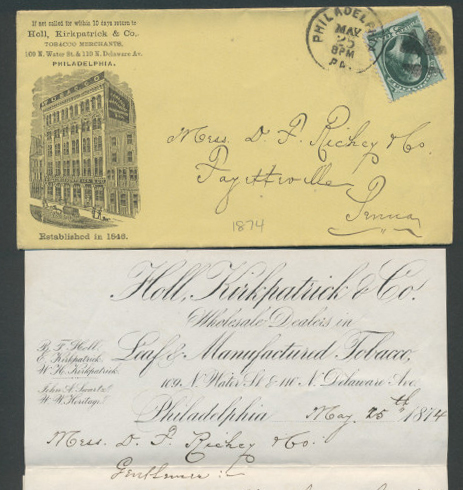 If not called for within 10 days return to
Holl, Kirkpatrick & Co.
TOBACCO MERCHANTS,
109 N. Water St. & 110 N. Delaware Av.
PHILADELPHIA.
TOBACCO
Established in 1846.
PHILADELPHIA
MAY
25
8PM
PA.
Mess. D. F. Richey & Co.
Fayettville
Penna
1874
Holl, Kirkpatrick & Co.
Wholesale Dealers in
Leaf & Manufactured Tobacco,
109 N. Water St. & 110 N. Delaware Ave.
P. F. Holl.
E. Kirkpatrick.
W. H. Kirkpatrick.
John A. Swartz.
W. W. Heritage.
Philadelphia May 25th 1874
Mess. D. F. Richey & Co.
Gentlemen: